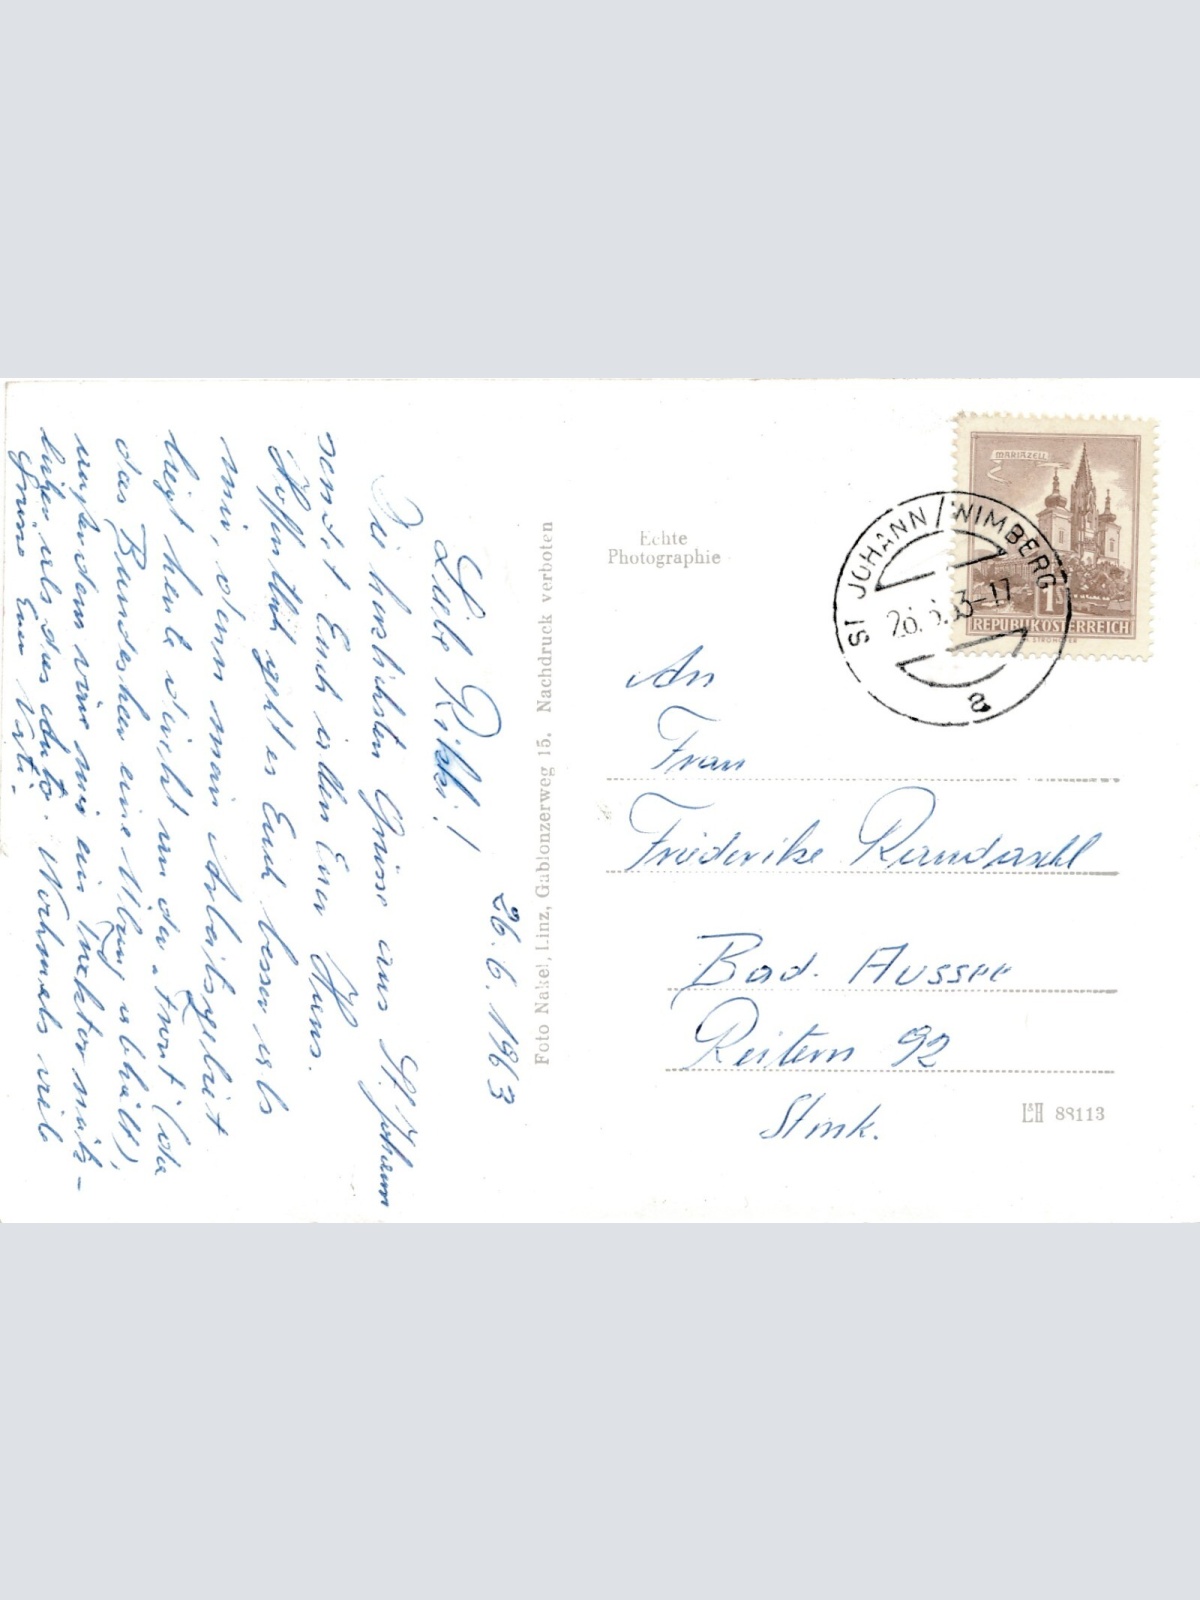 26.6.1963
Liebe Rikki!
Die herzlichsten Grüsse aus St. Johann
sendet Euch allen Euer Hans.
Hoffentlich geht es Euch besser als
mir, denn mein Arbeitsgebiet
liegt heute dicht an der "Front" (da
das Bundesheer eine Übung abhält),
außerdem wäre mir ein Traktor nütz-
licher als das Auto. Nochmals viele
Grüsse Euer
Foto Nakel, Linz, Gablonzerweg 15. Nachdruck verboten
Echte
Photographie
MARIAZELL
1S
REPUBLIK ÖSTERREICH
ST JOHANN/WIMBERG
26.6.63-17
a
An
Frau
Friederike Randaschl
Bad. Aussee
Reitern 92
Stmk.
L&H 88113